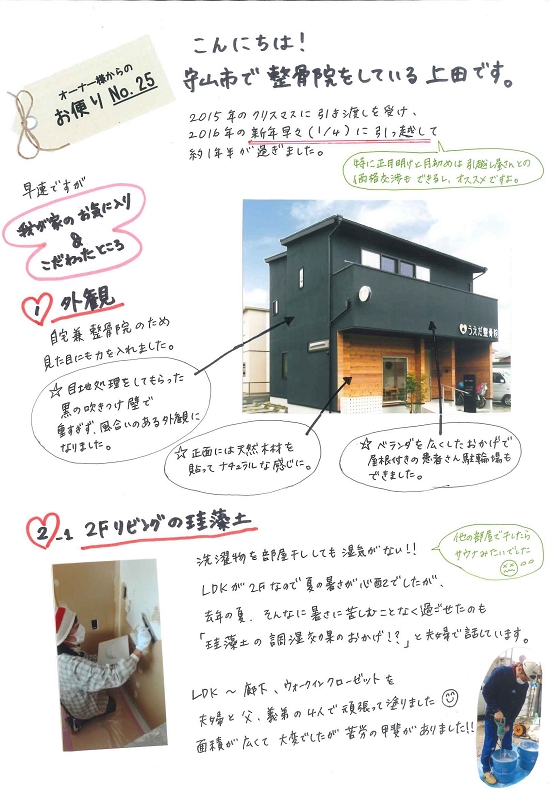 オーナー様からの
お便り No.25
こんにちは!
守山市で整骨院をしている上田です。
2015年のクリスマスに引き渡しを受け、
2016年の新年早々(1/4)に引っ越して
約1年半が過ぎました。
特に正月明けと月初めは引越し屋さんとの
価格交渉もできるし、オススメですよ。
早速ですが
我が家のお気に入り
&
こだわったところ
1 外観
自宅兼整骨院のため
見た目にも力を入れました。
☆目地処理をしてもらった
黒の吹きつけ壁で
重すぎず、風合いのある外観に
なりました。
☆正面には天然木材を
貼ってナチュラルな感じに。
☆ベランダを広くしたおかげで
屋根付きの患者さん駐輪場も
できました。
うえだ整骨院
2-1 2Fリビングの珪藻土
洗濯物を部屋干ししても湿気がない!!
他の部屋で干したら
サウナみたいでした
LDKが2Fなので夏の暑さが心配でしたが、
去年の夏、そんなに暑さに苦しむことなく過ごせたのも
「珪藻土の調湿効果のおかげ!?」と夫婦で話しています。
LDK〜廊下、ウォークインクローゼットを
夫婦と父、義弟の4人で頑張って塗りました
面積が広くて大変でしたが苦労の甲斐がありました!!